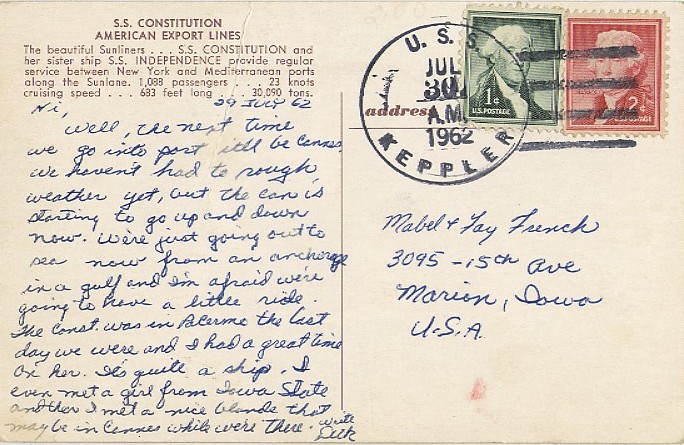 S.S. CONSTITUTION
AMERICAN EXPORT LINES
The beautiful Sunliners . . . S.S. CONSTITUTION and
her sister ship S.S. INDEPENDENCE provide regular
service between New York and Mediterranean ports
along the Sunlane. 1,088 passengers . . . 23 knots
cruising speed . . . 683 feet long . . . 30,090 tons.
29 July 62
Hi,
Well, the next time
we go into port itll be Cannes,
we haven't had to rough
weather yet, but the can is
starting to go up and down
now. We're just going out to
sea now from an anchorage
in a gulf and I'm afraid we're
going to have a little ride.
The Const. was in Palermo the last
day we were and I had a great time
on her. It's quite a ship. I
even met a girl from Iowa State
and her I met a nice blonde that
may be in Cannes while we're there. Write
Dick
U.S.S.
JUL
30
A.M.
1962
KEPPLER
address
1¢
U.S. POSTAGE
2¢
POSTAGE
Mabel & Fay French
3095 - 15th Ave
Marion, Iowa
U.S.A.